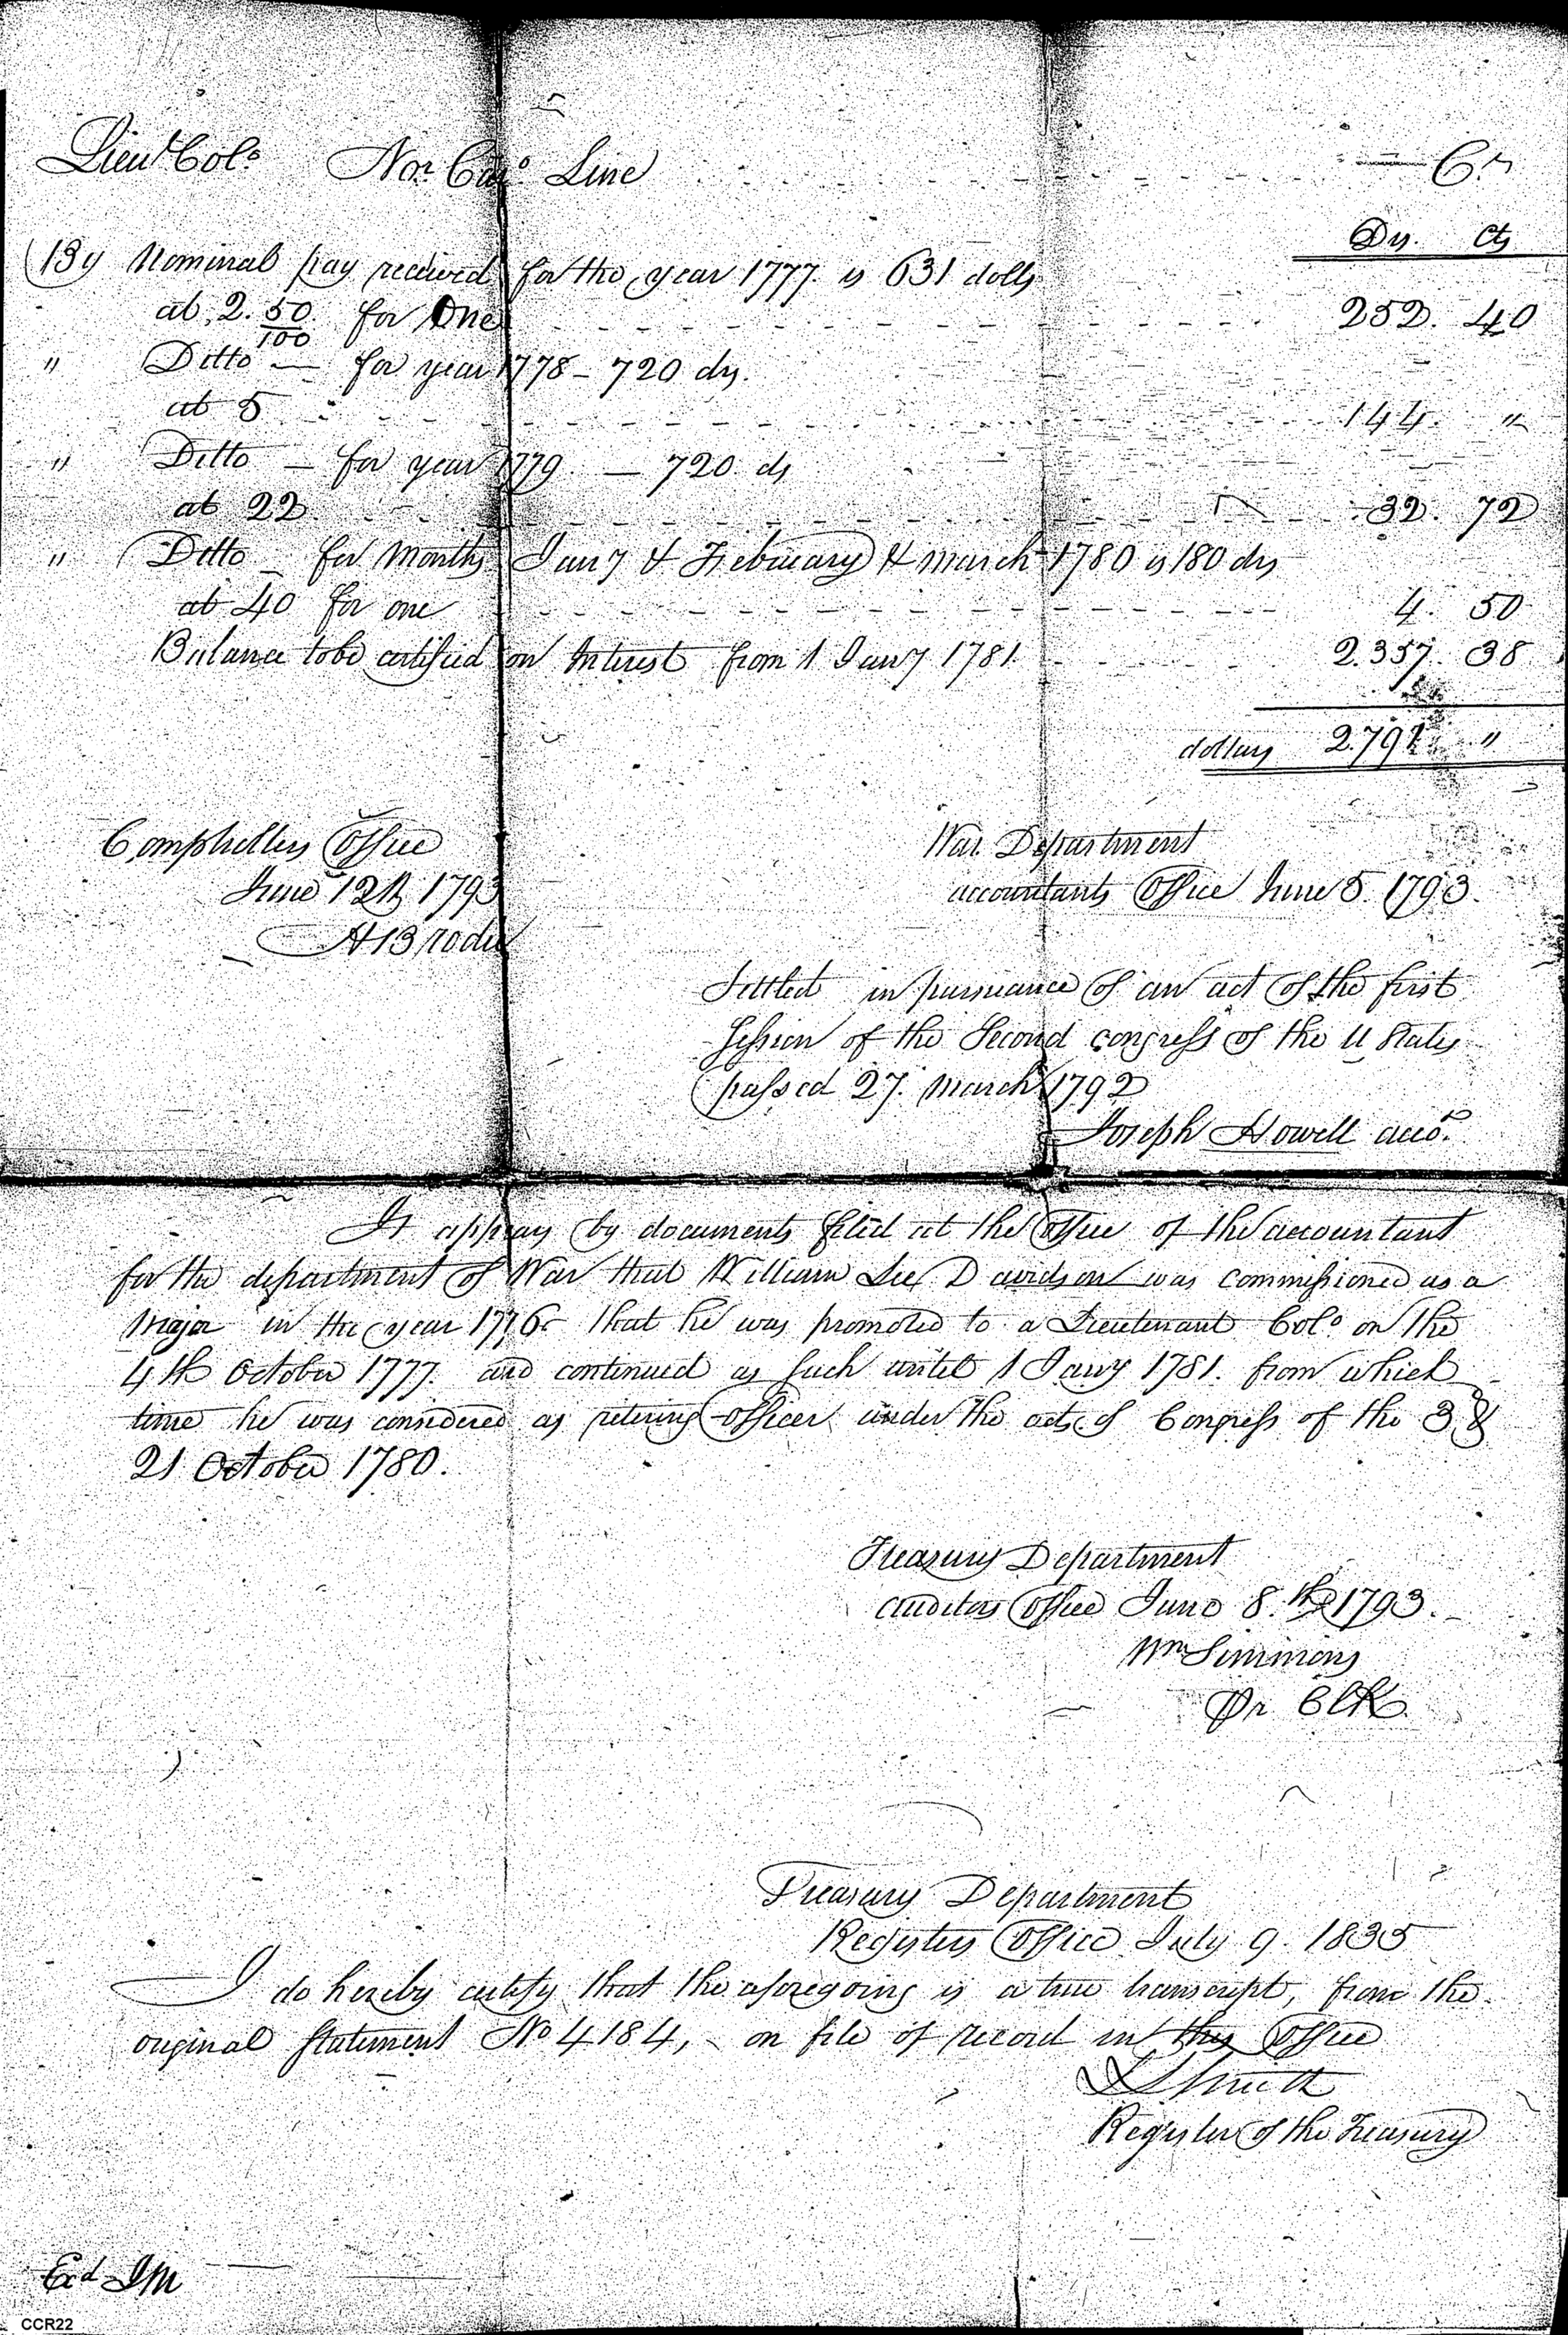 Lieut Colo Nor Caro Line Cr
Drs. Cts
By Nominal pay received for the year 1777 is 631 dolls
at 2. 50/100 for One 252. 40
" Ditto — for year 1778 – 720 drs.
at 5 144. "
" Ditto — for year 1779 — 720 ds
at 22 32. 72
" Ditto — for Months Jany & February & march 1780 is 180 drs
at 40 for one 4. 50
Balance to be certified on Interest from 1 Jany 1781 2.357. 38
dollars 2.791 "
Comphellers Office
June 12th 1793
A Brodie
War Department
accountants Office June 5. 1793.
Settled in pursuance of an act of the first
Session of the Second congress of the U States
passed 27. March 1792
Joseph Howell acco.t
It appears by documents filed at the Office of the accountant
for the department of War that William Lee Davidson was commissioned as a
Major in the year 1776. that he was promoted to a Lieutenant Colo on the
4th October 1777. and continued as such until 1 Jany 1781. from which
time he was considered as retiring officer under the acts of Congress of the 3 &
21 October 1780.
Treasury Department
auditors Office June 8.th 1793.
Wm Simmons
Pr Clk.
Treasury Department
Registers Office July 9. 1835
I do hereby certify that the aforegoing is a true transcript, from the
original Statement No 4184, on file of record in this Office
Smith
Register of the Treasury
Exd JM
CCR22